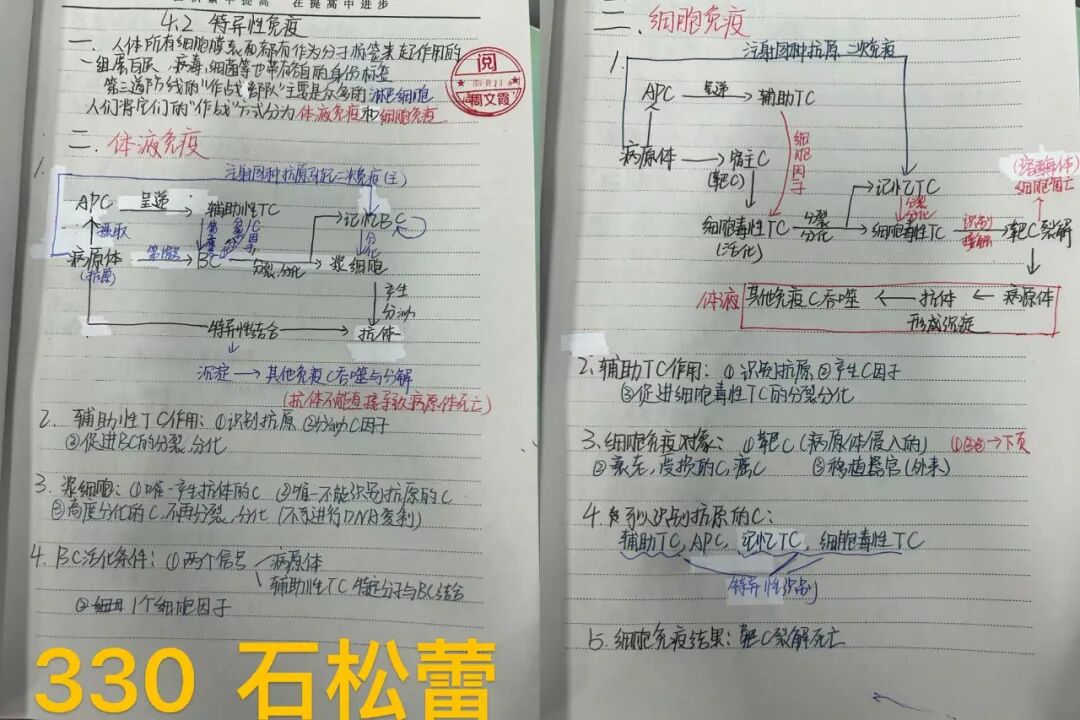 在提高中进步
4.2 特异性免疫
一、人体所有细胞膜表面都有作为分子标签来起作用的
一组蛋白质，病毒，细菌等也带有各自的身份标签
第三道防线的“作战部队”主要是众多的淋巴细胞
人们将它们的“作战”方式分为体液免疫和细胞免疫
阅
周文霞
二、体液免疫
1.
注射同种抗原引起二次免疫(主)
APC 呈递 辅助性TC 记忆BC
摄取
分化
病原体 BC 分裂,分化 浆细胞
(抗原)
产生
分泌
特异性结合 抗体
沉淀 其他免疫C吞噬与分解
(抗体不能直接导致病原体死亡)
2. 辅助性TC作用：①识别抗原 ②分泌C因子
③促进BC的分裂,分化
3. 浆细胞：①唯一产生抗体的C ②唯一不能识别抗原的C
③高度分化的C,不再分裂,分化 (不再进行DNA复制)
4. BC活化条件：①两个信号 病原体
辅助性TC 特定分子与BC结合
② 1个细胞因子
330 石松蕾
二、细胞免疫
1.
注射同种抗原 二次免疫
APC 呈递 辅助TC
细胞因子
病原体 宿主C
(靶C)
记忆TC
分裂
分化
细胞凋亡
细胞毒性TC 分裂 细胞毒性TC 识别 靶C裂解
(活化) 分化 接触
体液 其他免疫C吞噬 抗体 病原体
形成沉淀
2、辅助TC作用：①识别抗原 ②产生C因子
③促进细胞毒性TC的分裂分化
3、细胞免疫对象：①靶C(病原体侵入的) →下页
②衰老,受损的C,癌C ③移植器官(外来)
4. 可以识别抗原的C：
辅助TC, APC, 记忆TC, 细胞毒性TC
特异性识别
5. 细胞免疫结果：靶C裂解死亡